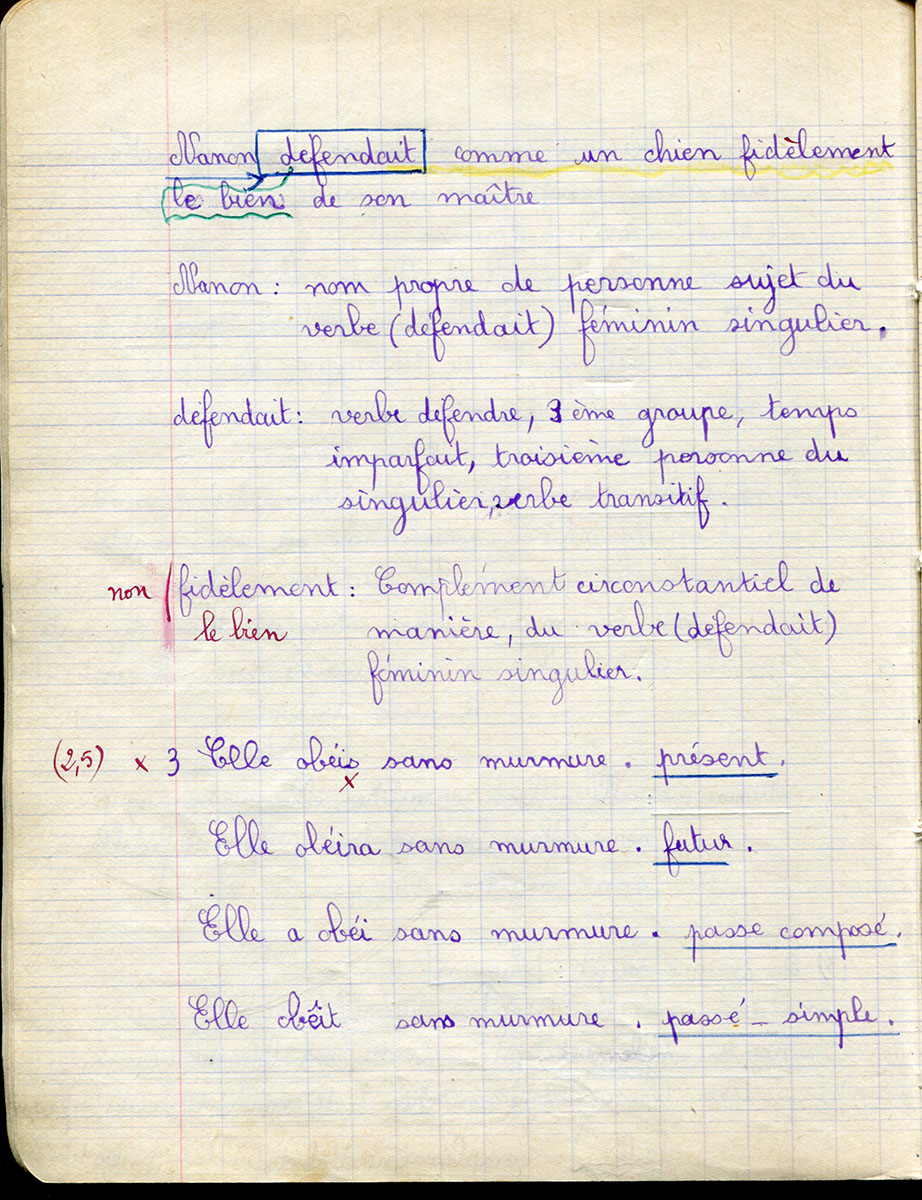 Nanon défendait comme un chien fidèlement
le bien de son maître
Nanon : nom propre de personne sujet du
verbe (défendait) féminin singulier.
défendait : verbe défendre, 3 ème groupe, temps
imparfait, troisième personne du
singulier, verbe transitif.
non / fidèlement : Complément circonstantiel de
le bien manière, du verbe (défendait)
féminin singulier.
(2,5) x 3 Elle obéis sans murmure . présent.
x
Elle obéira sans murmure . futur .
Elle a obéi sans murmure . passe composé.
Elle obéit sans murmure . passé - simple.